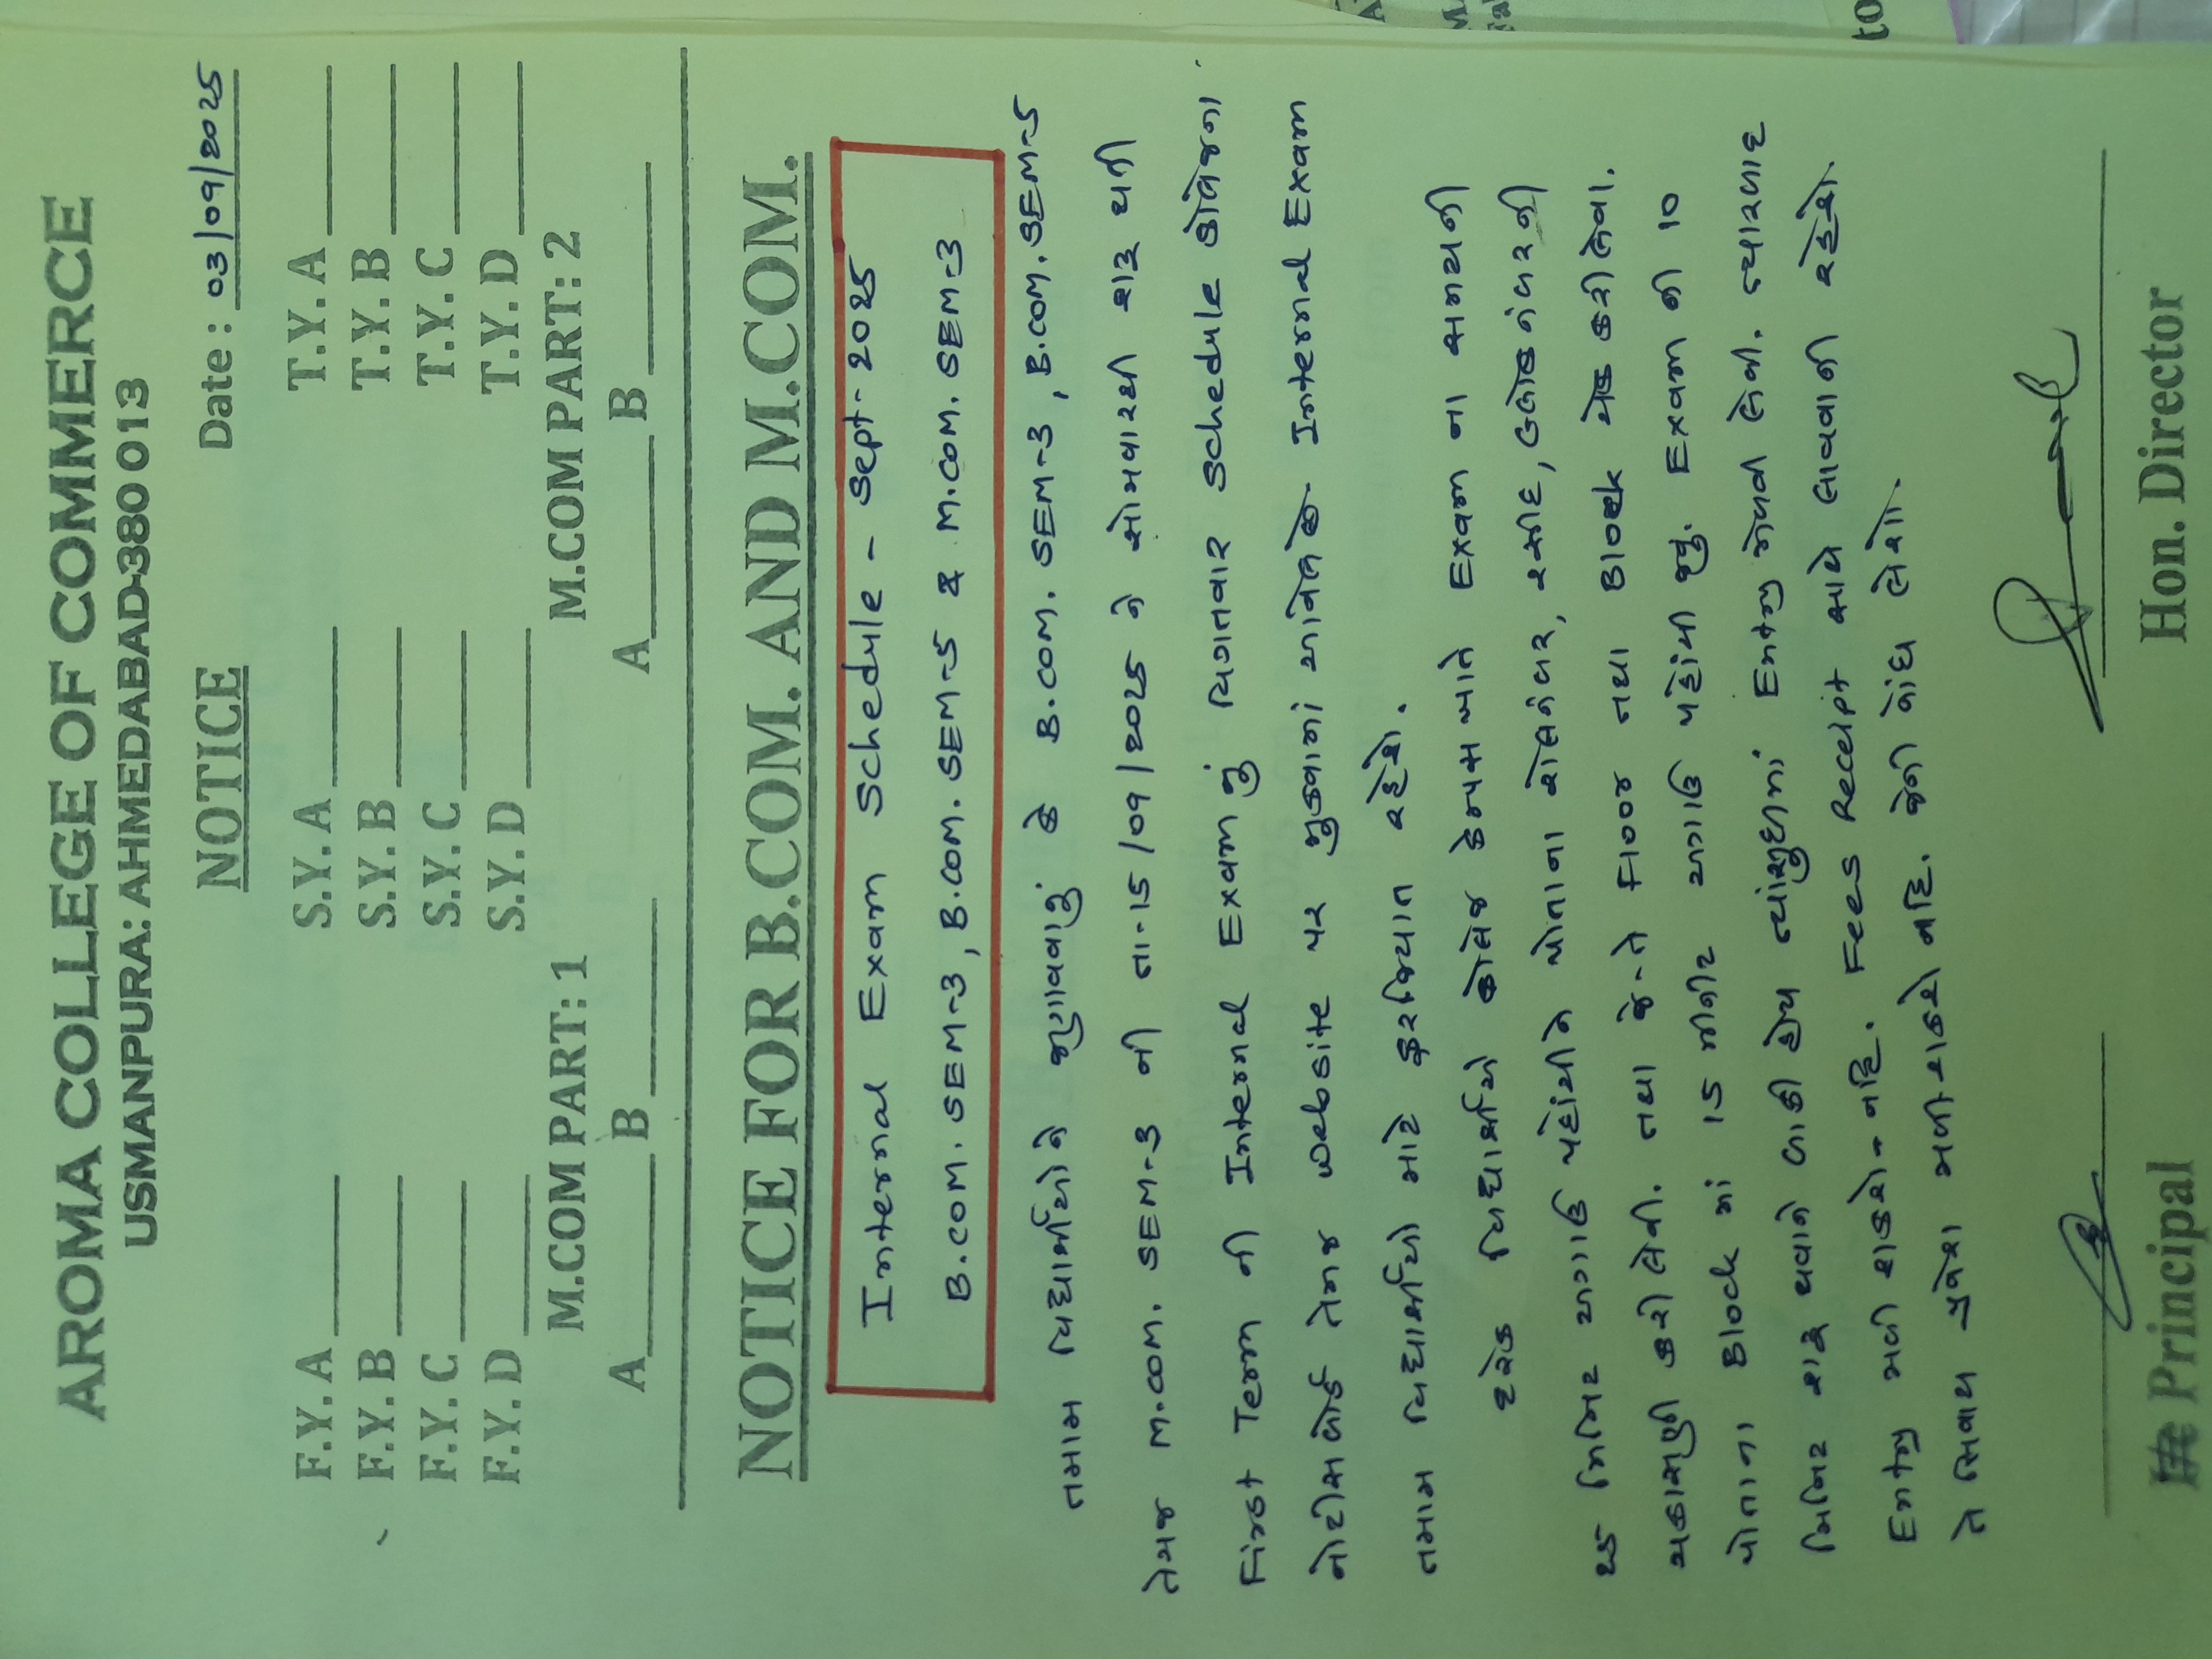 AROMA COLLEGE OF COMMERCE
USMANPURA: AHMEDABAD-380 013
NOTICE
Date : 03/09/2025
F.Y. A ______ S.Y. A ______ T.Y. A ______
F.Y. B ______ S.Y. B ______ T.Y. B ______
F.Y. C ______ S.Y. C ______ T.Y. C ______
F.Y. D ______ S.Y. D ______ T.Y. D ______
M.COM PART: 1 M.COM PART: 2
A ______ B ______ A ______ B ______
NOTICE FOR B.COM. AND M.COM.
Internal Exam Schedule - Sept-2025
B.COM. SEM-3, B.COM. SEM-5 & M.COM. SEM-3
તમામ વિદ્યાર્થીઓને જણાવવાનું કે B.COM. SEM-3, B.COM. SEM-5
તેમજ M.COM. SEM-3 ની તા-15/09/2025 ને સોમવારથી શરૂ થતી
First Term ની Internal Exam નું વિગતવાર Schedule કોલેજના
નોટીસબોર્ડ તેમજ website પર મુકવામાં આવેલ છે. Internal Exam
તમામ વિદ્યાર્થીઓ માટે ફરજિયાત રહેશે.
દરેક વિદ્યાર્થીએ કોલેજ કેમ્પસ ખાતે Exam ના સમયની
૨૫ મિનિટ અગાઉ પહોંચીને પોતાના રોલનંબર, રસીદ, બ્લોક નંબરની
ચકાસણી કરી લેવી. તથા જે-તે Floor તથા Block ચેક કરી લેવા.
પોતાના Block માં 15 મીનીટ અગાઉ પહોંચી જવું. Exam ની 10
મિનિટ શરૂ થવાને બાકી હોય ત્યાંસુધીમાં Entry મેળવી લેવી. ત્યારબાદ
Entry મળી શકશે- નહિ. Fees Receipt સાથે લાવવાની રહેશે.
તે સિવાય પ્રવેશ મળી શકશે નહિ. જેની નોંધ લેશો.
Principal Hon. Director